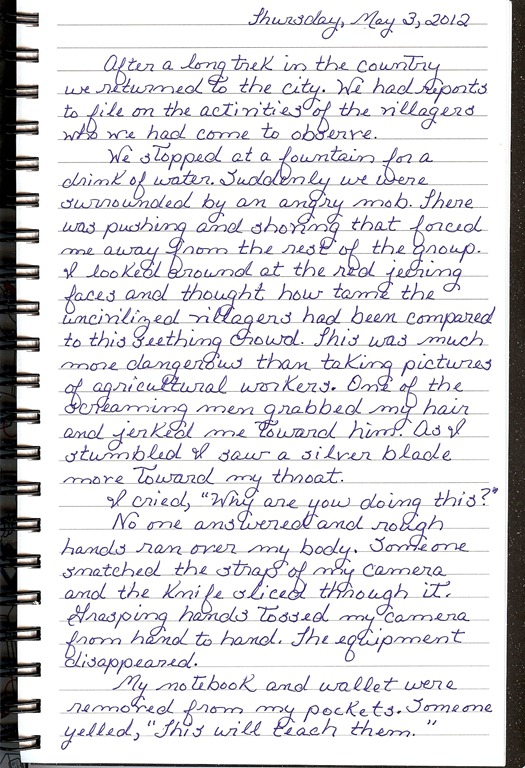 Thursday, May 3, 2012
After a long trek in the country
we returned to the city. We had reports
to file on the activities of the villagers
who we had come to observe.
We stopped at a fountain for a
drink of water. Suddenly we were
surrounded by an angry mob. There
was pushing and shoving that forced
me away from the rest of the group.
I looked around at the red jeering
faces and thought how tame the
uncivilized villagers had been compared
to this seething crowd. This was much
more dangerous than taking pictures
of agricultural workers. One of the
screaming men grabbed my hair
and jerked me toward him. As I
stumbled I saw a silver blade
move toward my throat.
I cried, "Why are you doing this?"
No one answered and rough
hands ran over my body. Someone
snatched the strap of my camera
and the knife sliced through it.
Grasping hands tossed my camera
from hand to hand. The equipment
disappeared.
My notebook and wallet were
removed from my pockets. Someone
yelled, "This will teach them."